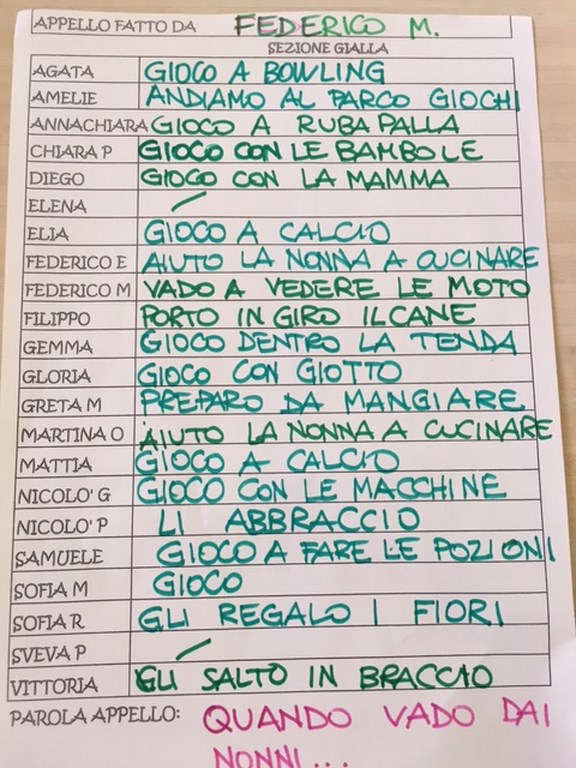 APPELLO FATTO DA FEDERICO M.
SEZIONE GIALLA
AGATA GIOCO A BOWLING
AMELIE ANDIAMO AL PARCO GIOCHI
ANNACHIARA GIOCO A RUBA PALLA
CHIARA P GIOCO CON LE BAMBOLE
DIEGO GIOCO CON LA MAMMA
ELENA /
ELIA GIOCO A CALCIO
FEDERICO E AIUTO LA NONNA A CUCINARE
FEDERICO M VADO A VEDERE LE MOTO
FILIPPO PORTO IN GIRO IL CANE
GEMMA GIOCO DENTRO LA TENDA
GLORIA GIOCO CON GIOTTO
GRETA M PREPARO DA MANGIARE
MARTINA O AIUTO LA NONNA A CUCINARE
MATTIA GIOCO A CALCIO
NICOLO' G GIOCO CON LE MACCHINE
NICOLO' P LI ABBRACCIO
SAMUELE GIOCO A FARE LE POZIONI
SOFIA M GIOCO
SOFIA R GLI REGALO I FIORI
SVEVA P /
VITTORIA GLI SALTO IN BRACCIO
PAROLA APPELLO: QUANDO VADO DAI
NONNI...